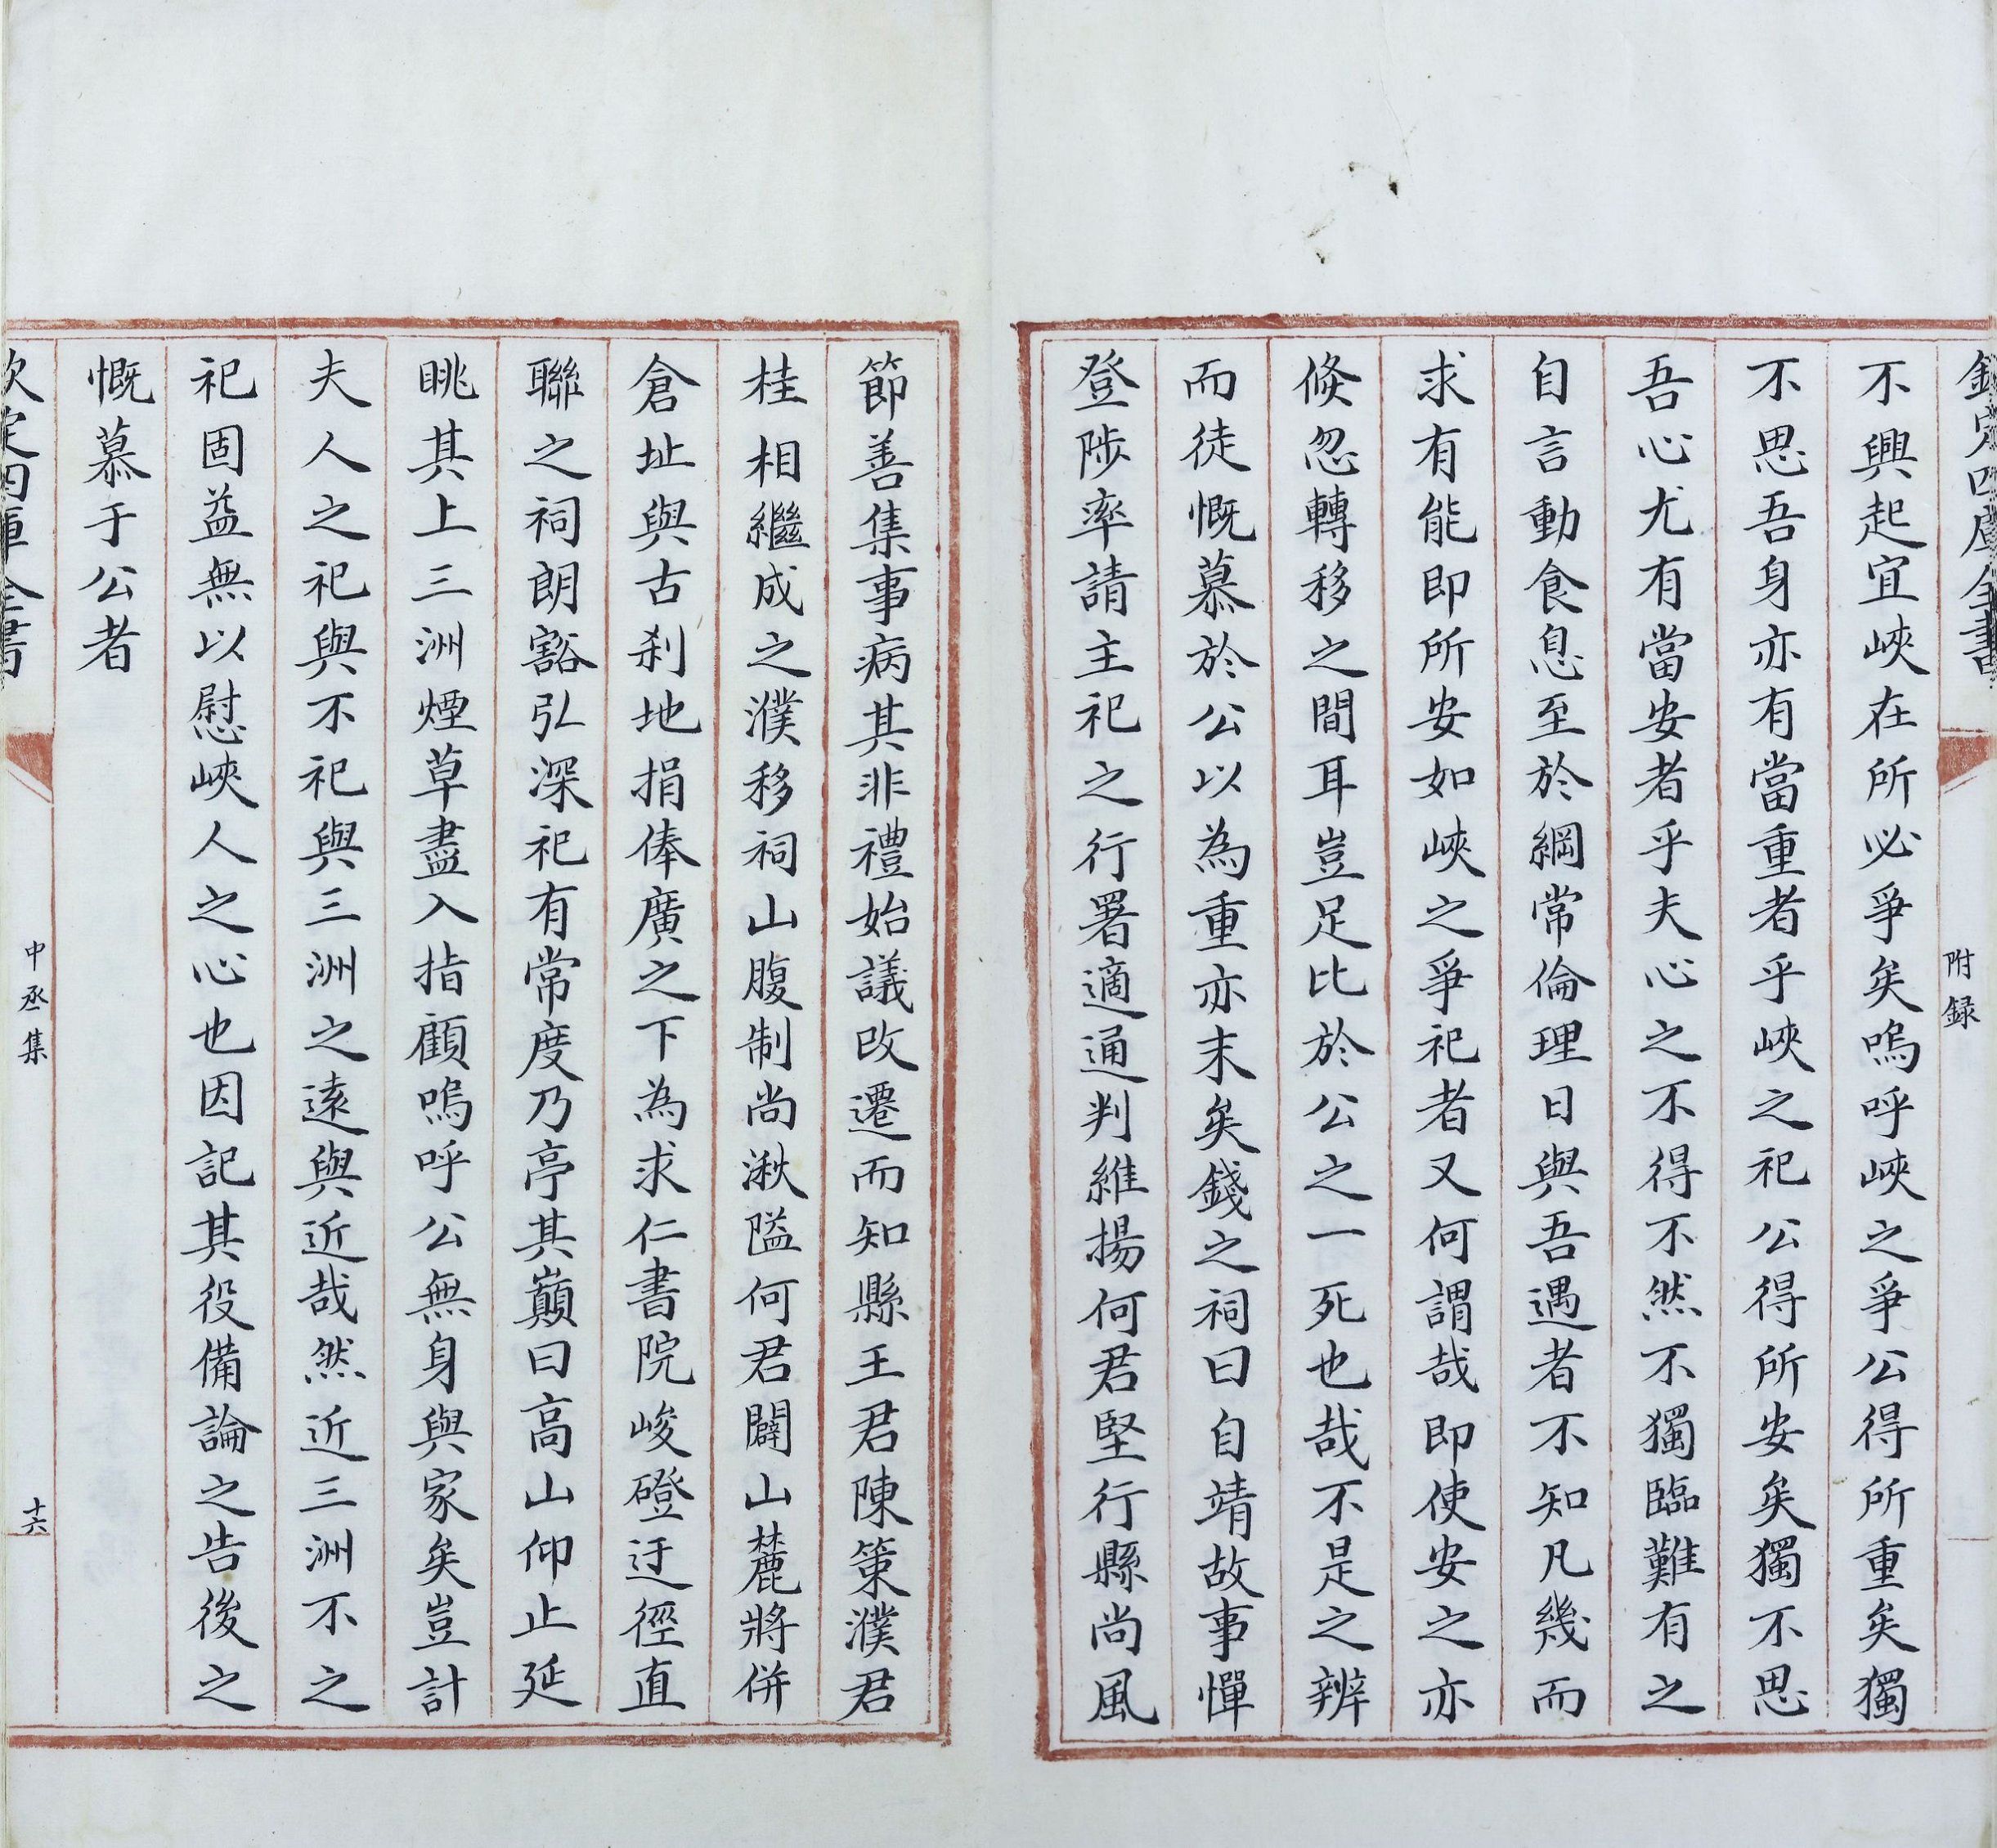 欽定四庫全書
附録
不興起宜峽在所必爭矣嗚呼峽之爭公得所重矣獨
不思吾身亦有當重者乎峽之祀公得所安矣獨不思
吾心尤有當安者乎夫心之不得不然不獨臨難有之
自言動食息至於綱常倫理日與吾遇者不知凡幾而
求有能即所安如峽之爭祀者又何謂哉即使安之亦
倐忽轉移之間耳豈足比於公之一死也哉不是之辨
而徒慨慕於公以為重亦末矣錢之祠曰自靖故事憚
登陟率請主祀之行署適通判維揚何君堅行縣尚風
節善集事病其非禮始議改遷而知縣王君陳策濮君
桂相繼成之濮移祠山腹制尚湫隘何君闢山麓將併
倉址與古刹地捐俸廣之下為求仁書院峻磴迂徑直
聯之祠朗豁弘深祀有常度乃亭其巔曰高山仰止延
眺其上三洲煙草盡入指顧嗚呼公無身與家矣豈計
夫人之祀與不祀與三洲之遠與近哉然近三洲不之
祀固益無以慰峽人之心也因記其役備論之告後之
慨慕于公者
欽定四庫全書
中丞集
十六